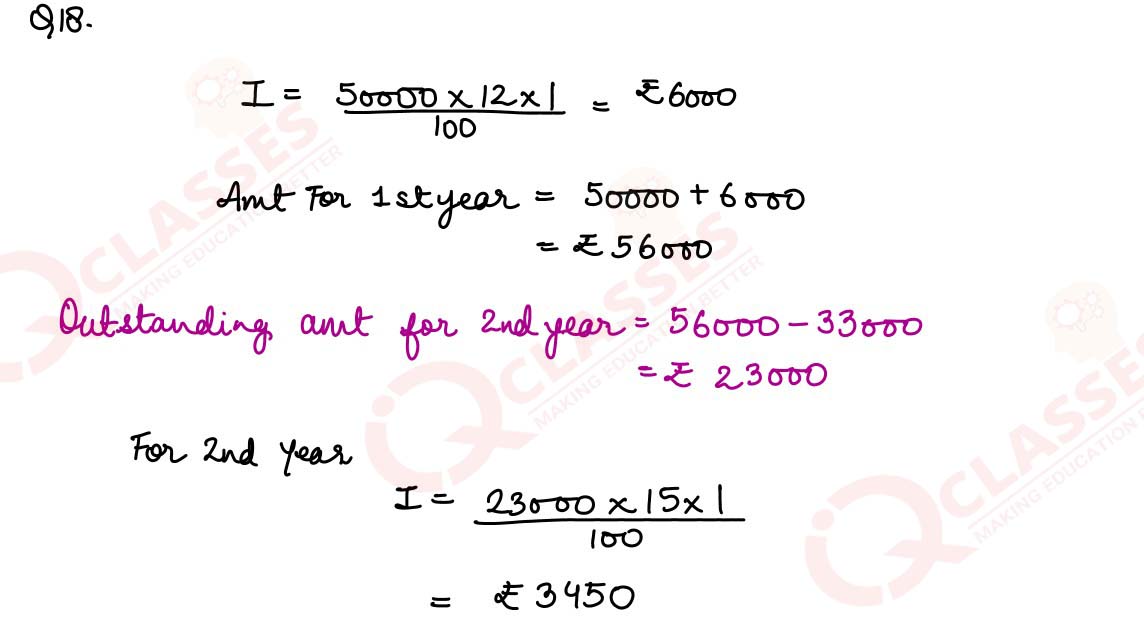 Q18.
I = 50000 x 12 x 1 / 100 = ₹6000
Amt For 1st year = 50000 + 6000
= ₹ 56000
Outstanding amt for 2nd year = 56000 - 33000
= ₹ 23000
For 2nd Year
I = 23000 x 15 x 1 / 100
= ₹ 3450
IQ CLASSES
MAKING EDUCATION BETTER
IQ CLASSES
MAKING EDUCATION BETTER
IQ CLASSES
MAKING EDUCATION